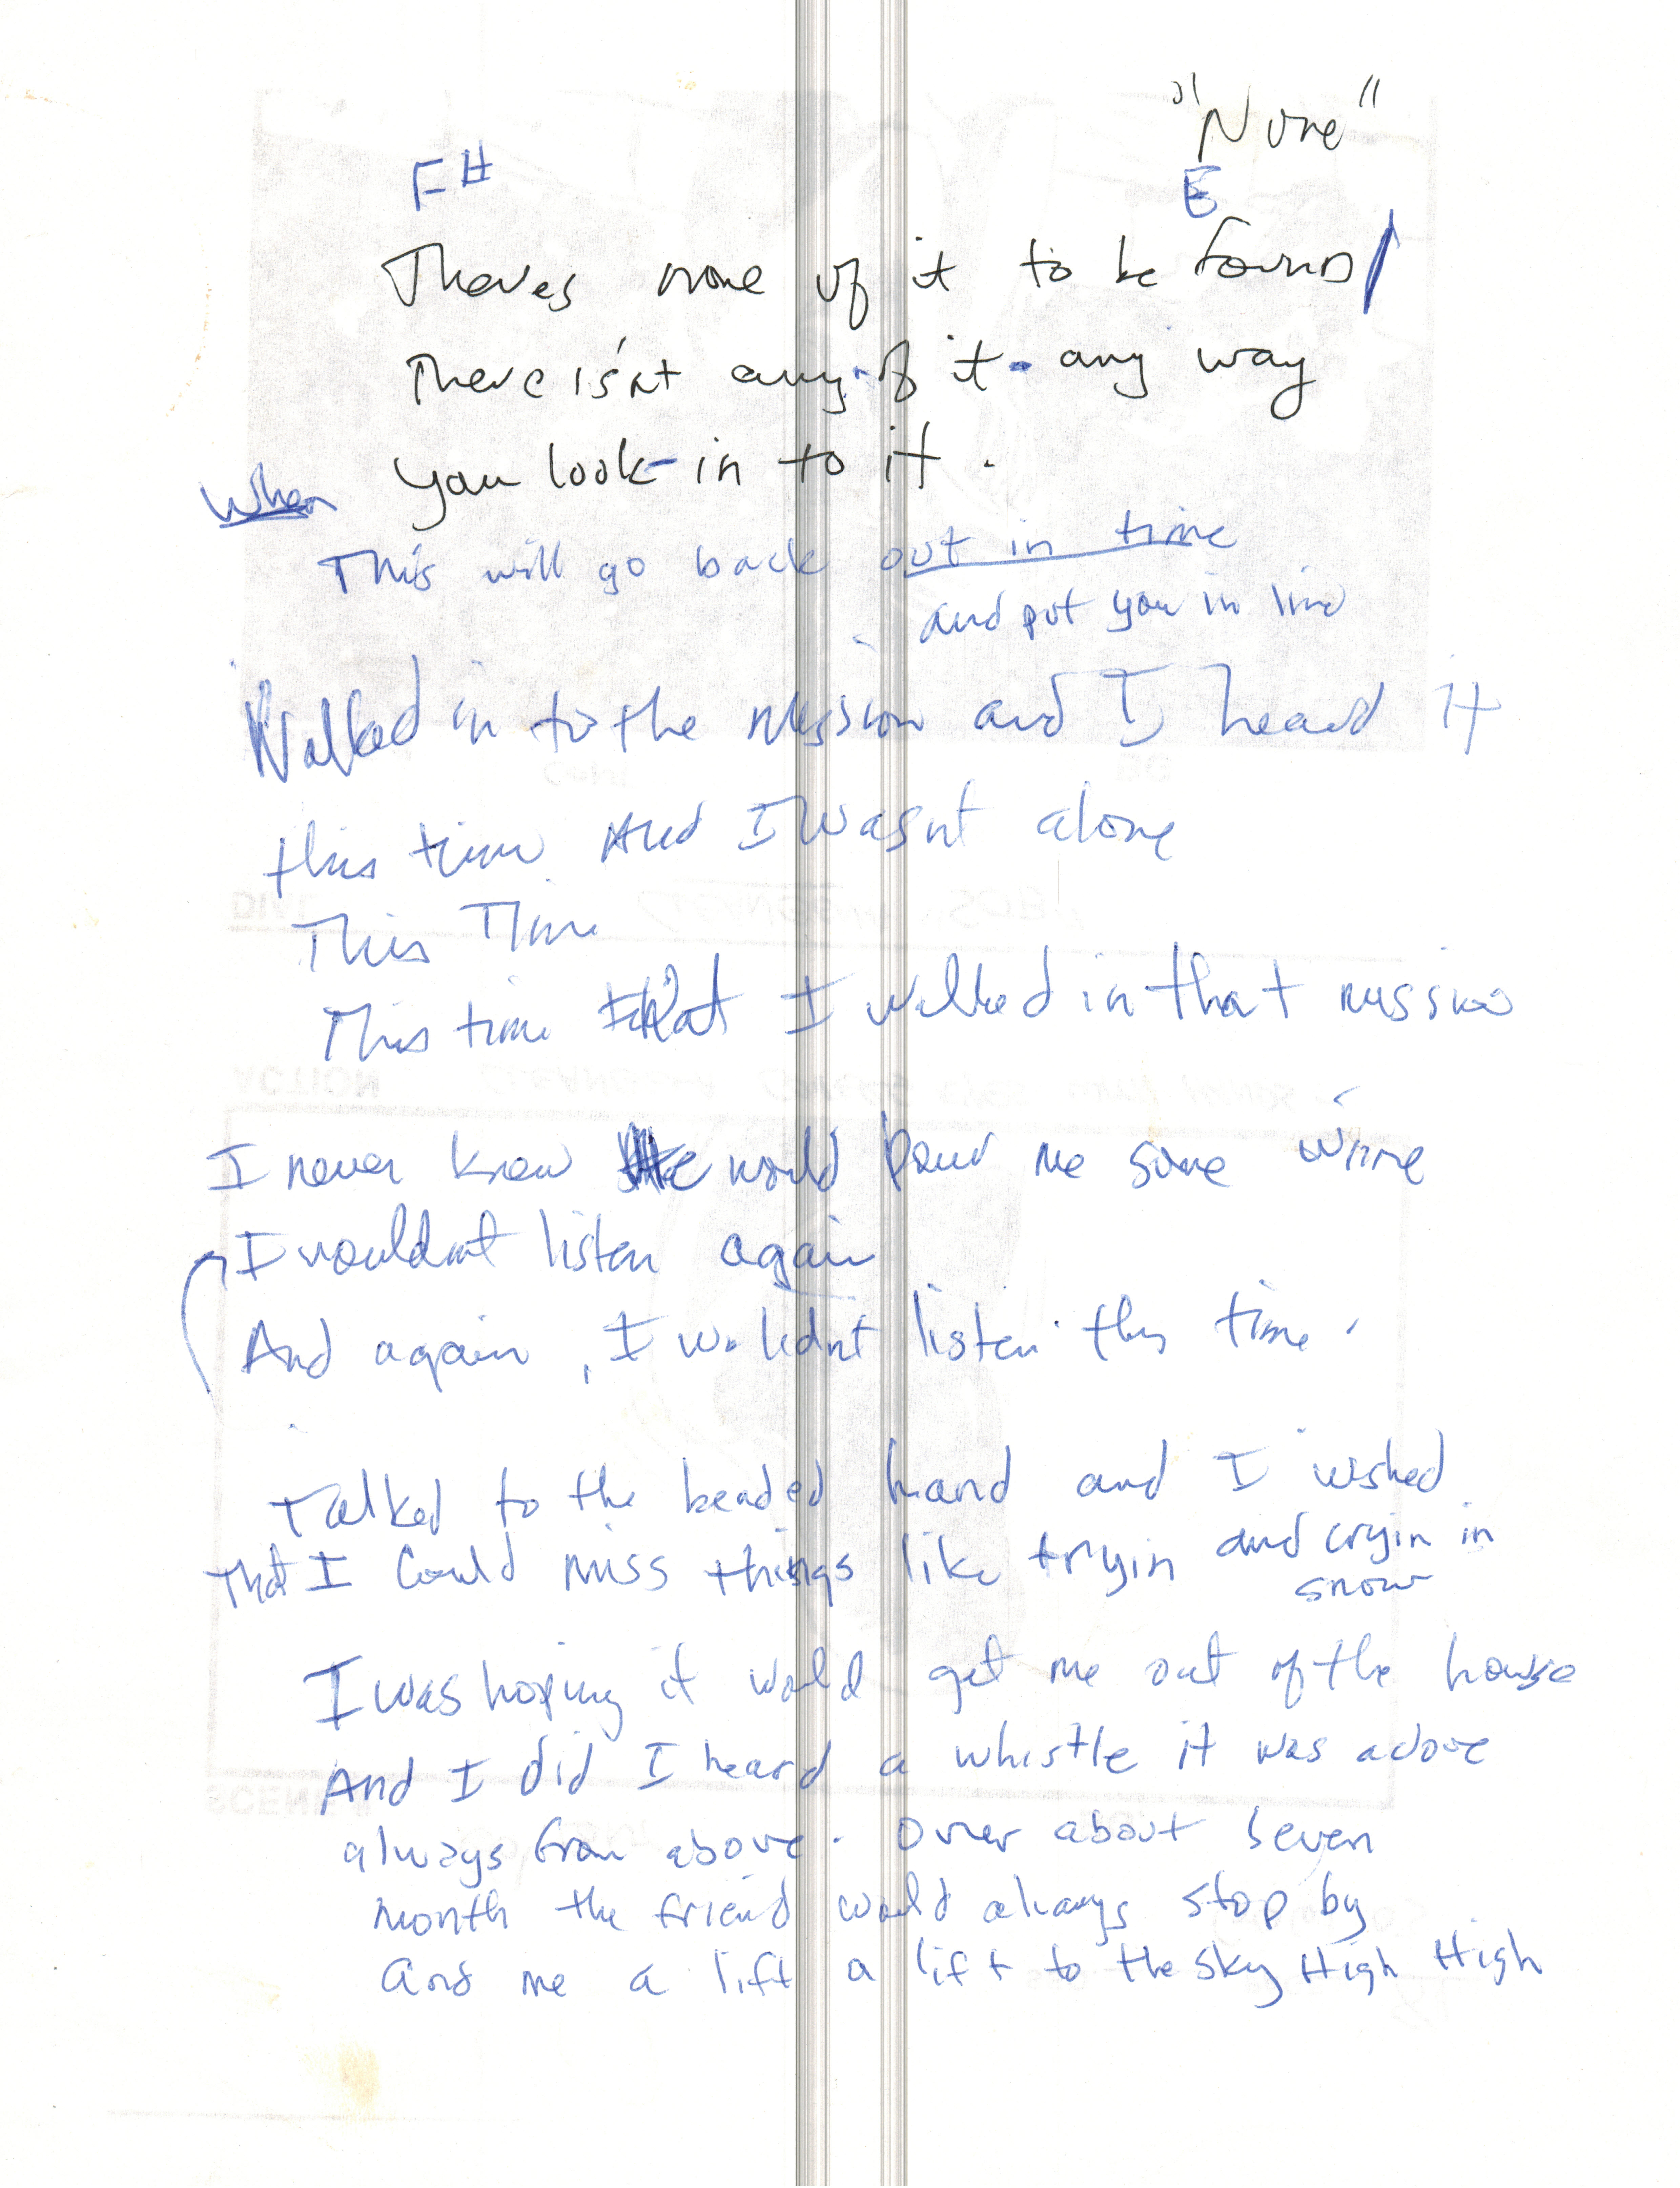 "None"
F# E
Theres none of it to be found
There is'nt any of it any way
you look in to it.
When
This will go back out in time
and put you in line
Walked in to the mission and I heard it
this time And I wasnt alone
This Time
This time that I walked in that mission
I never knew would pour me some wine
I wouldnt listen again
And again, I wouldnt listen this time.
Talked to the beaded hand and I wished
That I could miss things like tryin and cryin in
snow
I was hoping it would get me out of the house
And I did I heard a whistle it was above
always from above. Over about seven
month the friend would always stop by
And me a lift a lift to the sky High High
DIAL
ACTION
SCENE